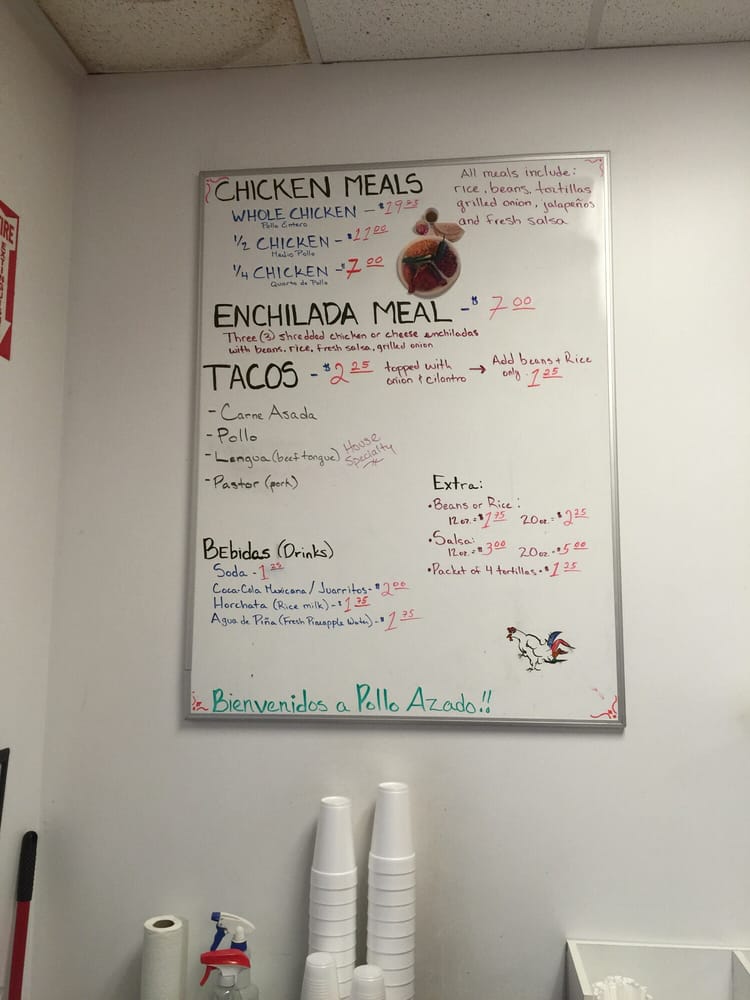 CHICKEN MEALS
WHOLE CHICKEN - $19.25
Pollo Entero
1/2 CHICKEN - $11.00
Medio Pollo
1/4 CHICKEN - $7.00
Quarto de Pollo
All meals include:
rice, beans, tortillas
grilled onion, jalapeños
and fresh salsa
ENCHILADA MEAL - $7.00
Three (3) shredded chicken or cheese enchiladas
with beans, rice, fresh salsa, grilled onion
TACOS - $2.25 topped with onion & cilantro → Add beans + Rice only 1.25
- Carne Asada
- Pollo
- Lengua (beef tongue) House Specialty
- Pastor (pork)
Extra:
• Beans or Rice:
12oz. = $1.75 20oz. = $2.25
• Salsa:
12oz. = $3.00 20oz. = $5.00
• Packet of 4 tortillas - $1.25
Bebidas (Drinks)
Soda - 1.25
Coca-Cola Mexicana / Juarritos - $2.00
Horchata (Rice milk) - $1.75
Agua de Piña (Fresh Pineapple Water) - $1.75
Bienvenidos a Pollo Azado!!